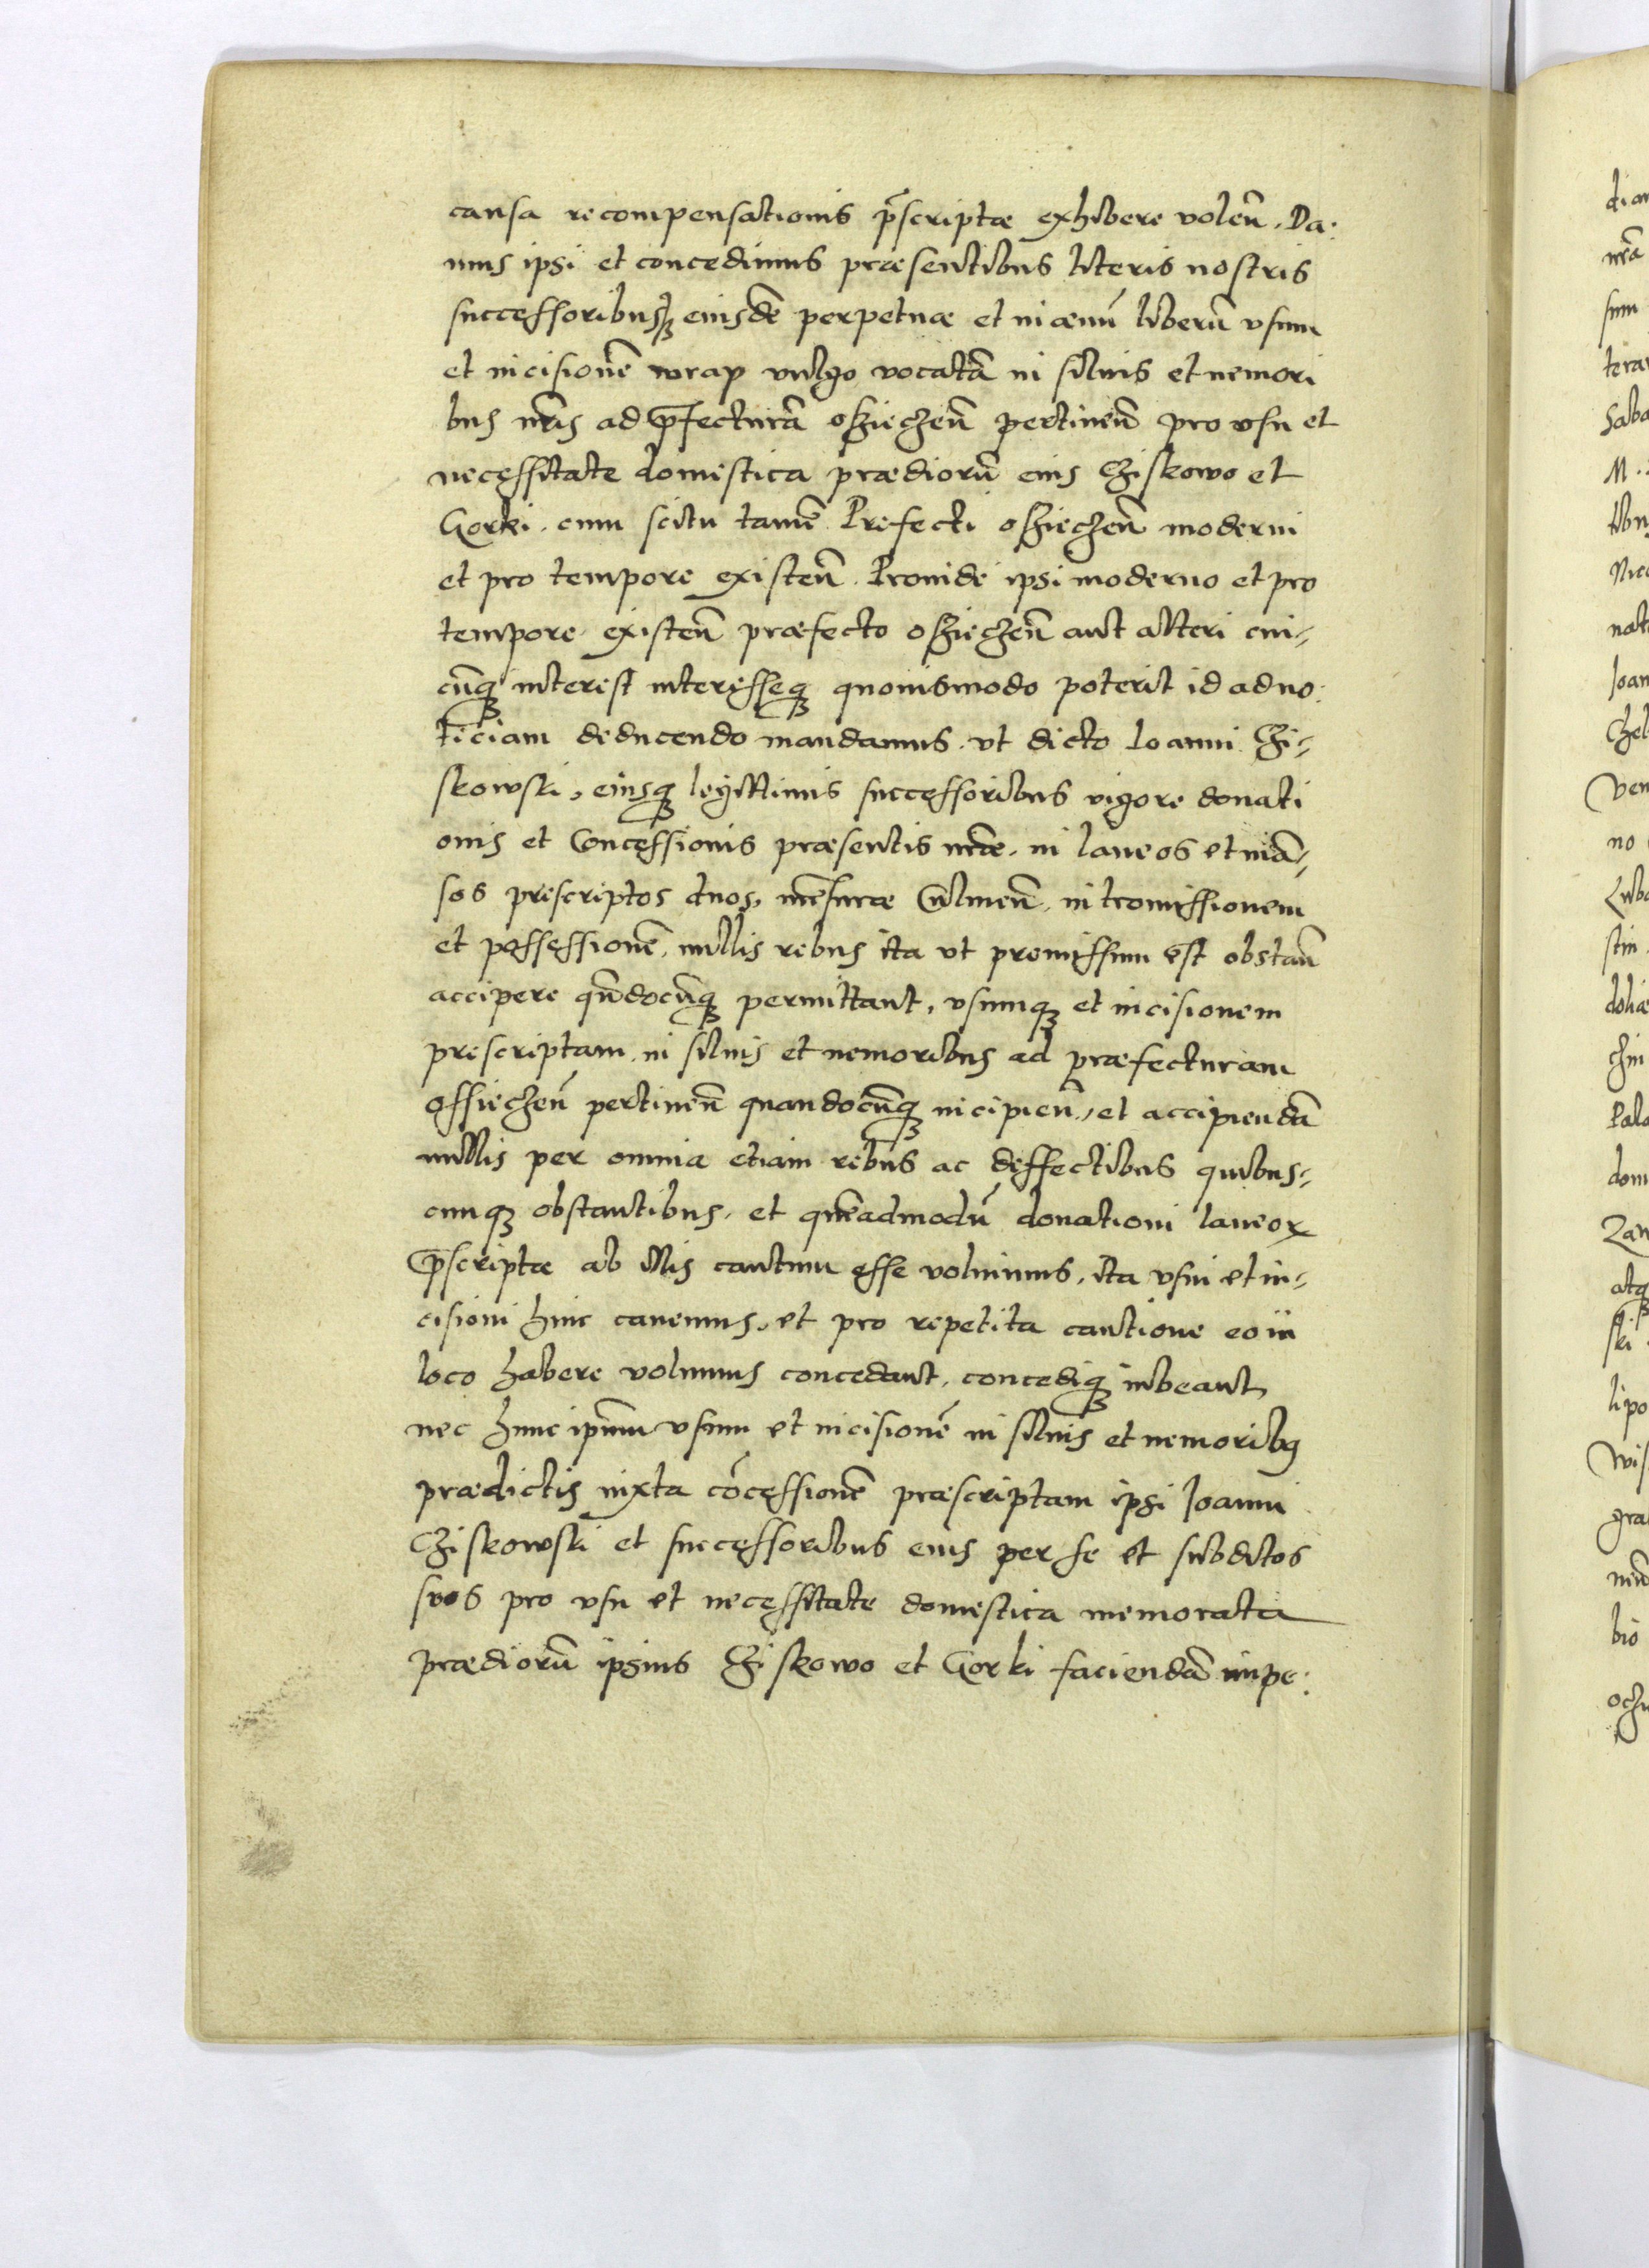 causa recompensationis p̄scriptæ exhibere voleñ. Da:
mus ipsi et concedimus præsentibus literis nostris
successoribusq̨ eiusdē perpetuæ et in æuū liberū vsum
et incisionē wrap vulgo vocatā in siluis et nemori
bus nr̄is ad p̄fecturā osziecżeñ pertineñ pro vsu et
necessitate domestica prædiorū eius Cziskowo et
Gorki. cum scitu tamē Prefecti osziecżeñ moderni
et pro tempore existeñ. Proinde ipsi moderno et pro
tempore existeñ præfecto osziecżeñ aut alteri cui-
cūq̨ interest interesseq̨ quouismodo poterit id ad no:
ticiam deducendo mandamus. vt dicto Joanni Czi-
skowski, eiusq̨ legittimis successoribus vigore donati
onis et Concessionis præsentis nr̄æ. in laneos et mā-
sos prescriptos duos, mēsuræ Culmeñ. intromissionem
et possessionē. nullis rebus ita vt premissum est obstañ
accipere qn̄docūq̨ permittant, vsumq̨ et incisionem
prescriptam. in siluis et nemoribus ad præfecturam
ossieczeñ pertineñ quandocūq̨ incipieñ, et accipiendā
nullis per omnia etiam rebus ac deffectibus quibus-
cunq̨ obstantibus. et quēadmodū donationi laneoꝝ
p̄scriptæ ab illis cautum esse voluimus, ita vsui et in-
cisioni huic cauemus, et pro repetita cautione eo in
loco habere volumus concedant, concediq̨ iubeant,
nec hunc ipsum vsum et incisionē in siluis et nemoribꝫ
prædictis iuxta cōcessionē præscriptam ipsi Joanni
Cziskowski et successoribus eius per se et subditos
suos pro vsu et necessitate domestica memorata
prædiorū ipsius Cziskowo et Gorki faciendā impe: